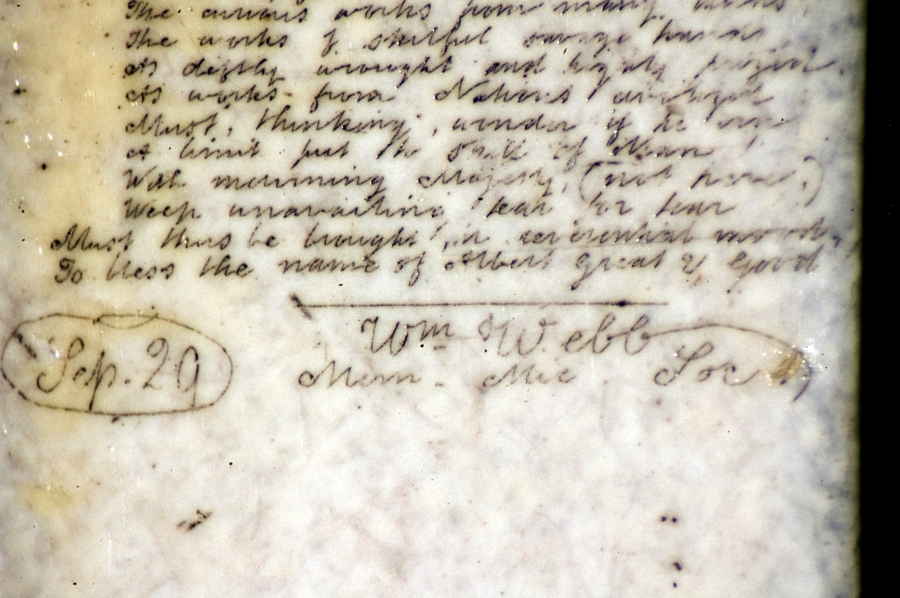 The curious works from many lands,
The works of skilful savage hands
As deftly wrought and highly
As works from Nations
Must, thinking, wonder if to
A limit put to Skill of Man!
With mourning Majesty, (not here,)
Weep unavailing tear for tear
Must thus be brought, in reverential mood,
To bless the name of Albert Great & Good
Wm Webb
Sep. 29 Mem. Mic. Soc